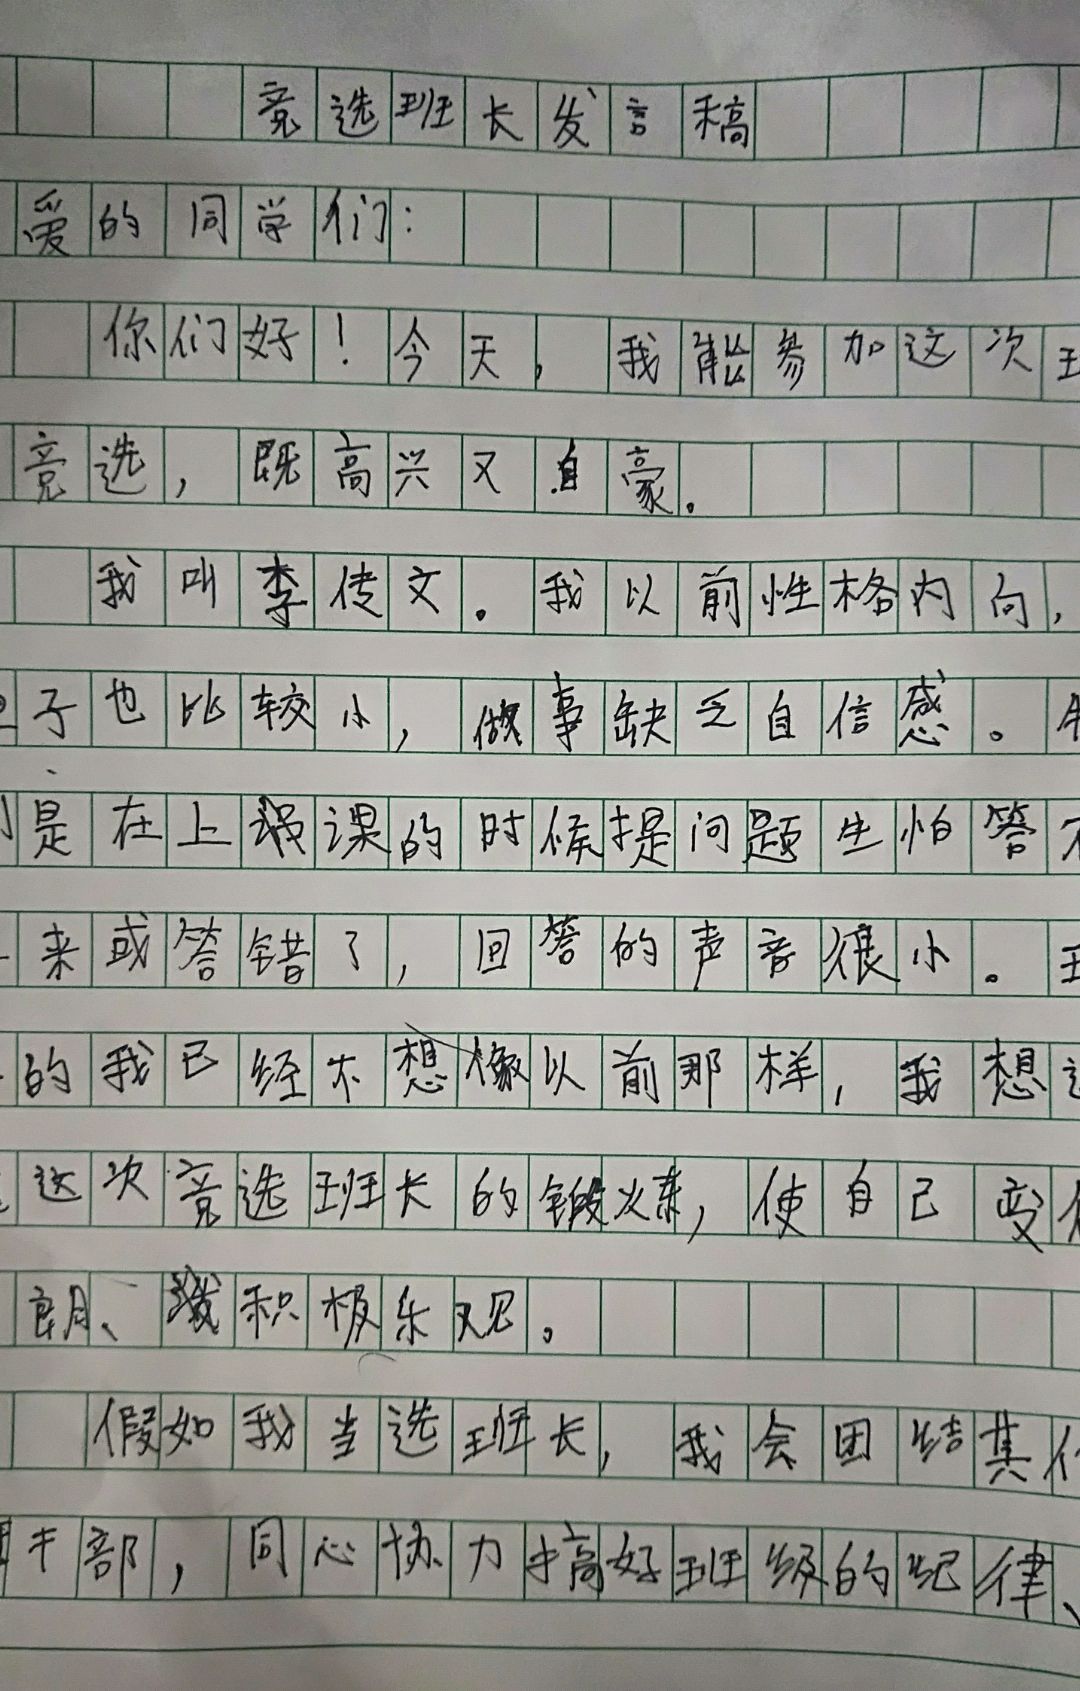 竞选班长发言稿
爱的同学们：
你们好！今天，我能参加这次
竞选，既高兴又自豪。
我叫李传文。我以前性格内向，
子也比较小，做事缺乏自信感。
是在上课的时候提问题生怕答
来或答错了，回答的声音很小。
的我已经不想像以前那样，我想
这次竞选班长的锻炼，使自己变
朗、积极乐观。
假如我当选班长，我会团结其
干部，同心协力搞好班级的纪律、